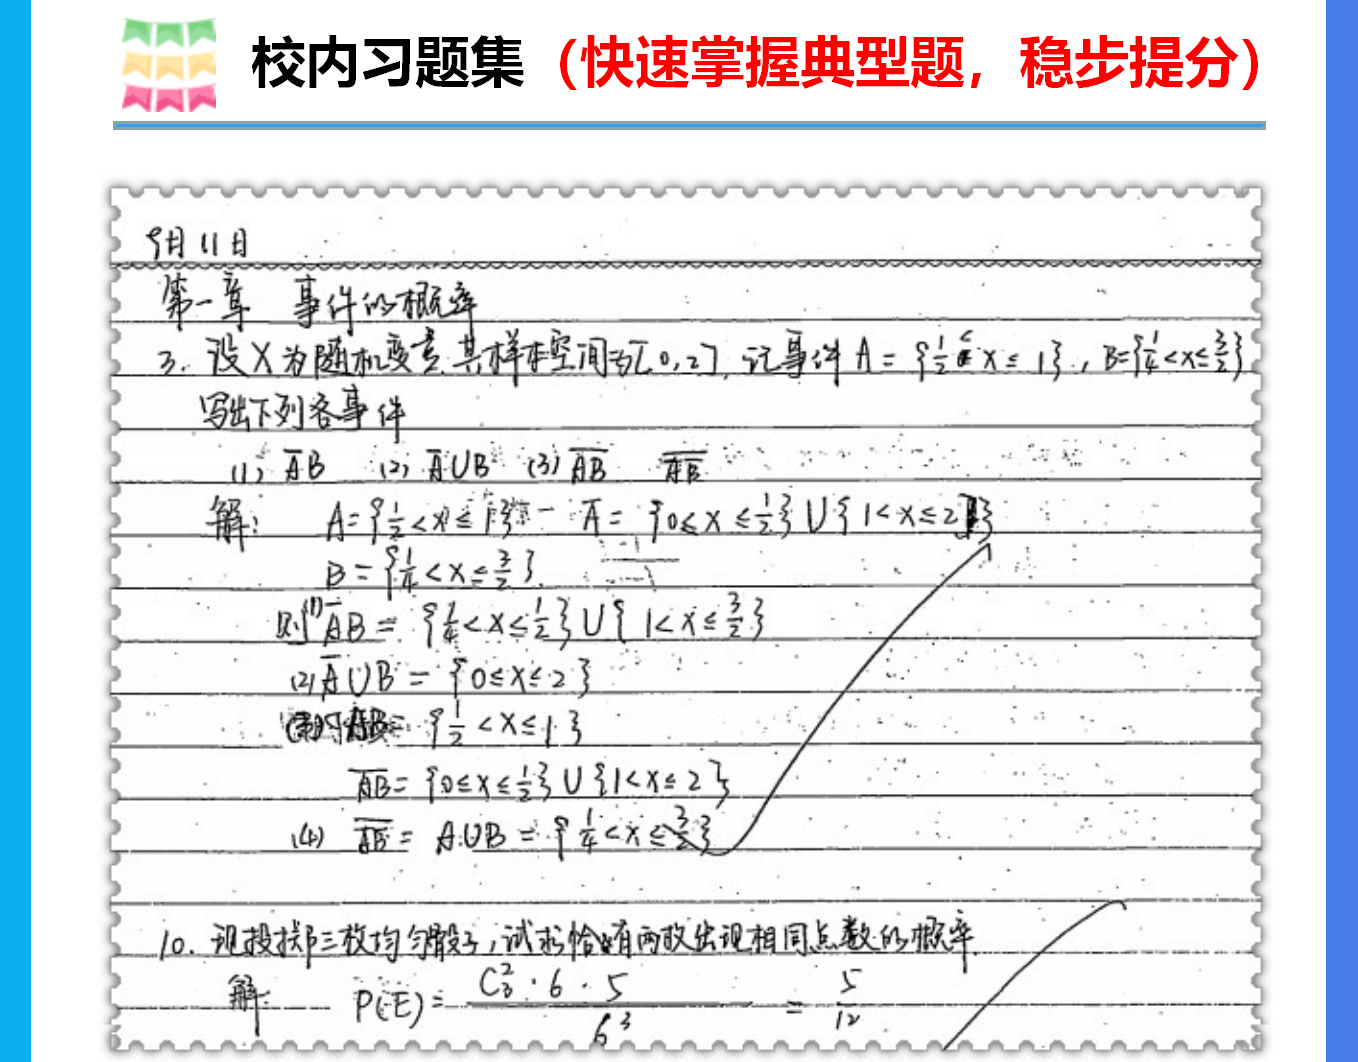 校内习题集（快速掌握典型题，稳步提分）
9月11日
第一章 事件的概率
3. 设X为随机变量,其样本空间为[0,2],记事件A={1/2≤x≤1},B={1/4<x≤3/2}
写出下列各事件
(1) A̅B (2) A̅∪B (3) A̅B̅
解: A={1/2<x≤1} A̅={0≤x≤1/2}∪{1<x≤2}
B={1/4<x≤3/2}
则(1) A̅B={1/4<x≤1/2}∪{1<x≤3/2}
(2) A̅∪B={0≤x≤2}
AB={1/2<x≤1}
A̅B̅={0≤x≤1/2}∪{1<x≤2}
(4) = A∪B={1/4<x≤3/2}
10. 现投掷三枚均匀骰子,试求恰有两枚出现相同点数的概率.
解: P(E)= C₃²·6·5 / 6³ = 5/12